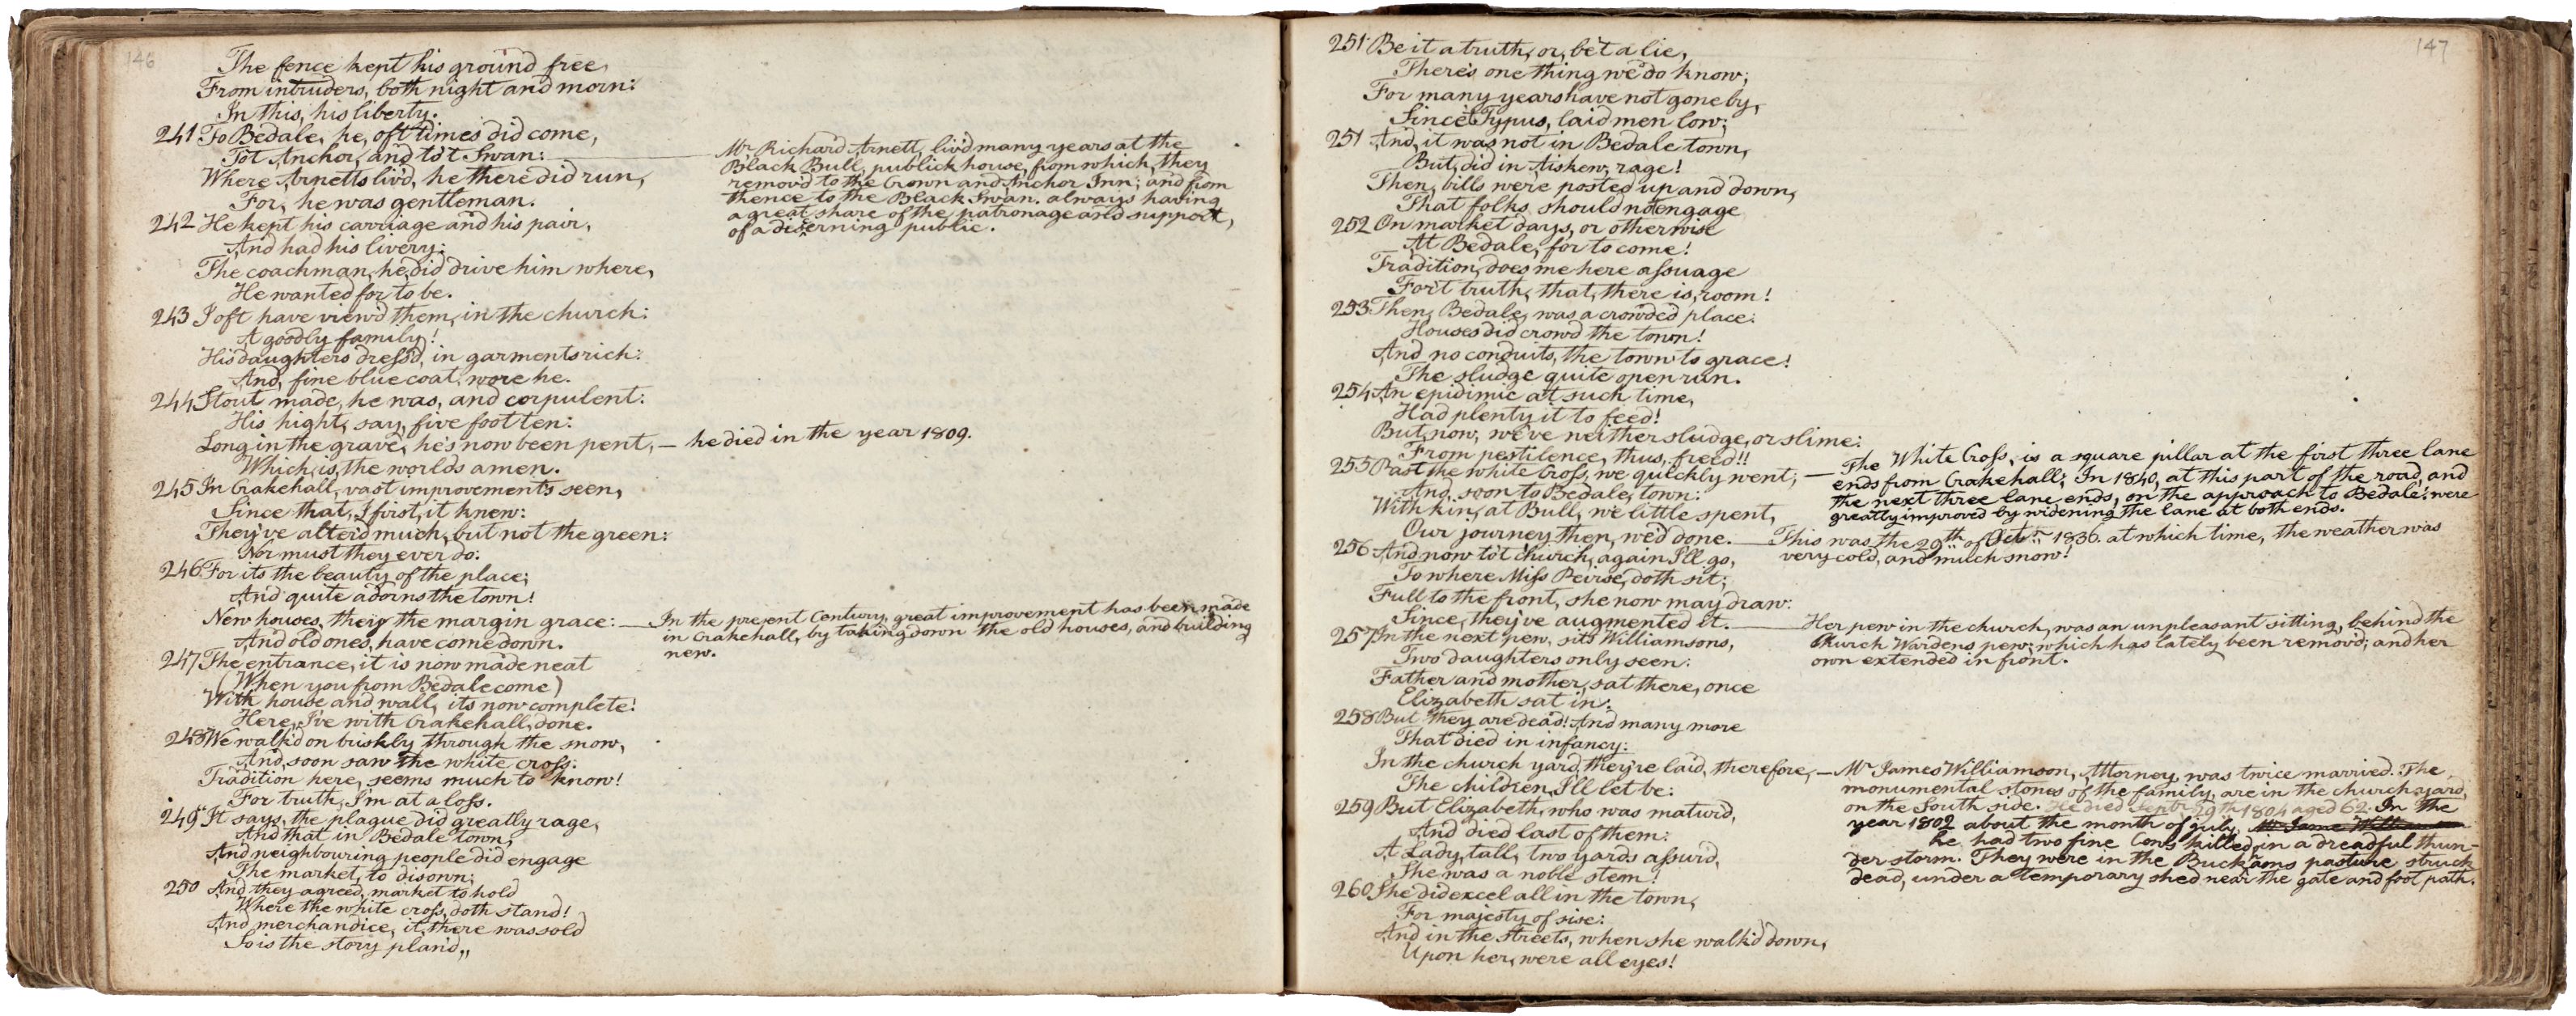 146
The fence kept his ground free,
From intruders, both night and morn:
In this, his liberty.
241 To Bedale, he, oft times did come,
To't Anchor, and to't Swan:
Where Arnetts liv'd, he there did run,
For, he was gentleman.
Mr Richard Arnett, liv'd many years at the
Black Bull, publick house, from which, they
remov'd to the Crown and Anchor Inn; and from
thence to the Black Swan. always having
a great share of the patronage and support,
of a discerning public.
242 He kept his carriage and his pair,
And had his livery:
The coachman, he, did drive him where,
He wanted for to be.
243 I oft have view'd them, in the church:
A goodly family!
His daughters dress'd, in garments rich:
And, fine blue coat, wore he.
244 Stout made, he was, and corpulent:
His hight, say, five foot ten:
Long in the grave, he's now been pent, — he died in the year 1809.
Which, is, the worlds amen.
245 In Crakehall, vast improvements seen,
Since that, I first, it knew:
They've alter'd much, but not the green:
Nor must they ever do:
246 For its the beauty of the place;
And quite adorns the town!
New houses, they the margin grace: — In the present Century, great improvement has been made
in Crakehall, by taking down the old houses, and building
new.
And old ones, have come down.
247 The entrance, it is now made neat
(When you from Bedale come)
With house and wall, its now complete!
Here, I've with Crakehall, done.
248 We walk'd on briskly through the snow,
And, soon saw the white cross:
Tradition here, seems much to know!
For truth, I'm at a loss.
249 It says, the plague did greatly rage,
And that in Bedale town,
And neighbouring people did engage
The market, to disown;
250 And they agreed, market to hold
Where the white cross, doth stand!
And merchandice, it, there was sold
So is the story plan'd,,
147
251 Be it a truth, or, be't a lie,
There's one thing we do know;
For many years have not gone by,
Since Typus, laid men low;
251 And, it was not in Bedale town,
But, did in Aiskew, rage!
Then, bills were posted up and down,
That folks should not engage
252 On market days, or otherwise
At Bedale, for to come!
Tradition, does me here assuage
For't truth, that, there is, room!
253 Then, Bedale, was a crowded place:
Houses did crowd the town!
And no conduits, the town to grace!
The sludge quite open run.
254 An epidimic at such time,
Had plenty it to feed!
But, now, we've neither sludge, or slime:
From pestilence, thus, freed!!
255 Past the white Cross, we quickly went; — The White Cross, is a square pillar at the first three lane
ends from Crakehall; In 1840, at this part of the road, and
the next three lane ends, on the approach to Bedale, were
greatly improved by widening the lane at both ends.
And, soon to Bedale, town:
With kin, at Bull, we little spent,
Our journey then, we'd done. — This was the 29th of Octr. 1836. at which time, the weather was
very cold, and much snow!
256 And now to't church, again I'll go,
To where Miss Peirse, doth sit;
Full to the front, she now may draw:
Since, they've augmented it. — Her pew in the church, was an unpleasant sitting, behind the
Church Wardens pew; which has lately been remov'd; and her
own extended in front.
257 In the next pew, sits Williamsons,
Two daughters only seen:
Father and mother, sat there, once
Elizabeth sat in:
258 But they are dead! And many more
That died in infancy:
In the church yard, they're laid, therefore, — Mr James Williamson, Attorney, was twice married. The
monumental stones of the family, are in the church yard,
on the South side. He died Septr 29th 1804 aged 62. In the
year 1802 about the month of July,
he, had two fine Cows killed, in a dreadful thun-
der storm. They were in the Buck'ams pasture struck
dead, under a temporary shed near the gate and foot path.
The children, I'll let be:
259 But Elizabeth, who was matur'd,
And died last of them:
A Lady, tall, two yards assur'd,
She was a noble stem!
260 She did excel all in the town,
For majesty of sise:
And in the streets, when she walk'd down,
Upon her, were all eyes!